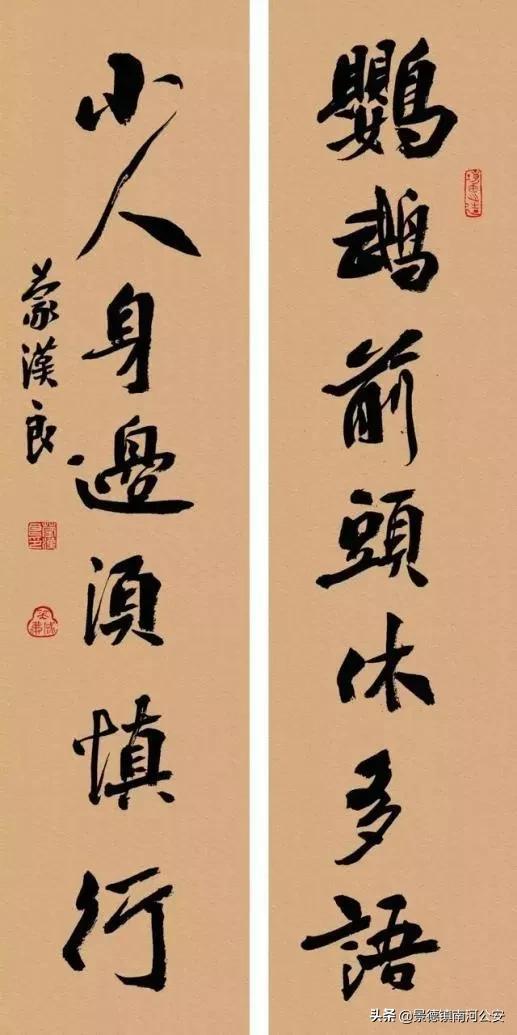 鸚鵡前頭休多語
小人身邊須慎行
蒙漢良
头条 @景德镇南河公安